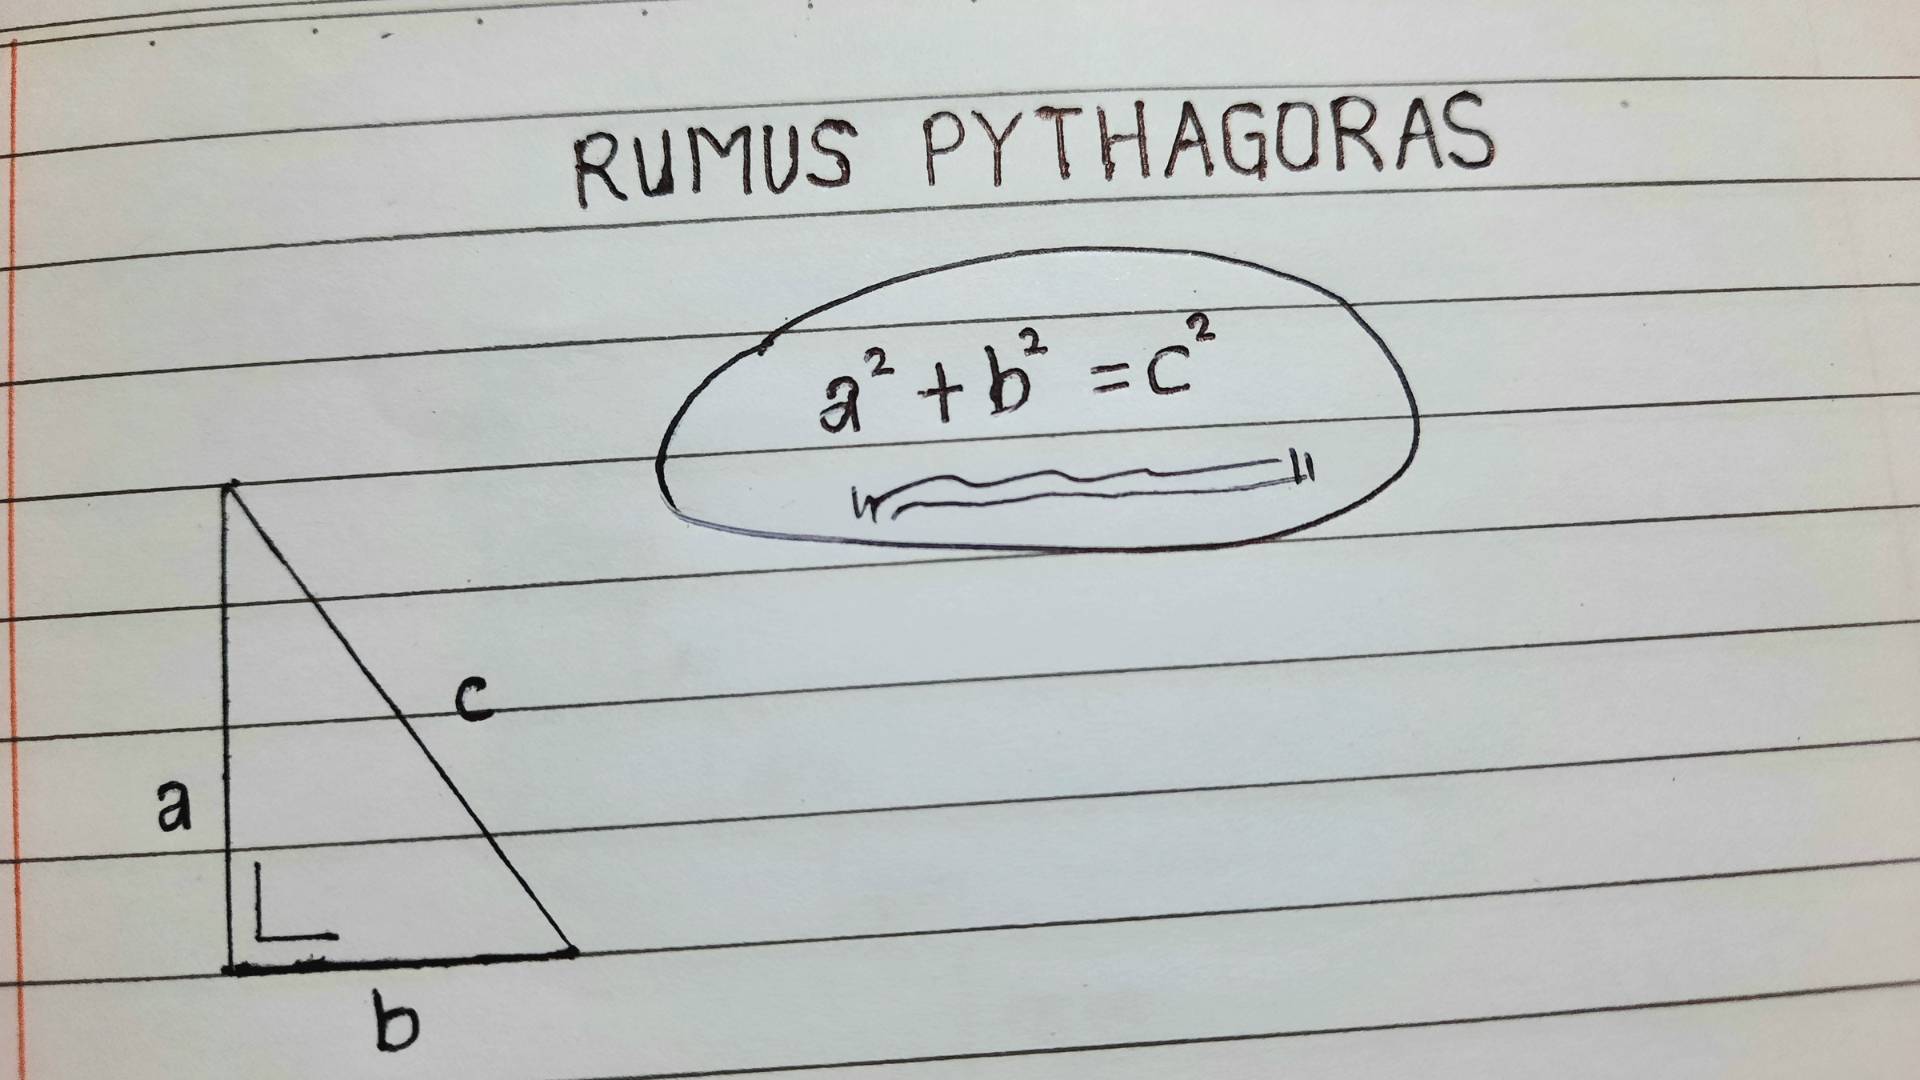 RUMUS PYTHAGORAS
a² + b² = c²
c
a
b